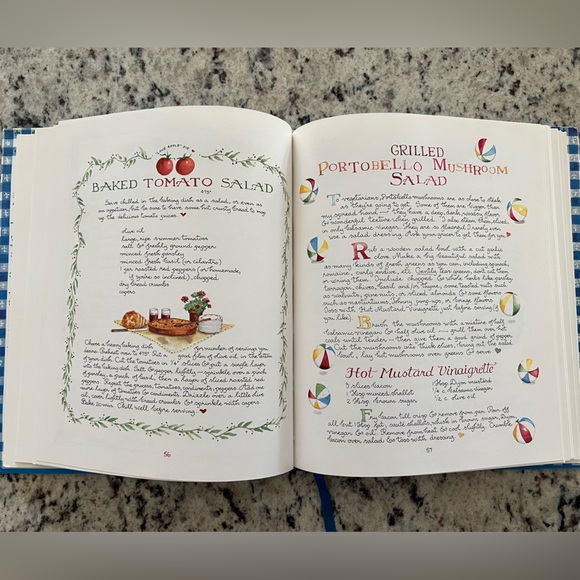 "LOVE APPLE" PIE
BAKED TOMATO SALAD
475°
Serve chilled in the baking dish as a salad, or even as
an appetizer, but be sure to have some hot crusty bread to mop
up the delicious tomato juices. ♥
olive oil
large, ripe summer tomatoes
salt & freshly ground pepper
minced fresh parsley
minced fresh basil (or cilantro)
1 jar roasted red peppers (or homemade,
if you're so inclined), chopped
dry bread crumbs
capers
Choose a baking dish for number of servings you
desire. Preheat oven to 475°. Put a good glug of olive oil in the bottom
of your dish. Cut the tomatoes in ½" slices & put a single layer
into the baking dish. Salt & pepper lightly — sprinkle over a good bit
of parsley, a little of basil, then a layer of sliced roasted red
peppers. Repeat the process, tomatoes, condiments, peppers. Add one
more layer of tomatoes & condiments. Drizzle over a little olive
oil, cover lightly with bread crumbs & sprinkle with capers.
Bake 30 min. Chill well before serving. ♥
56
GRILLED
PORTOBELLO MUSHROOM
SALAD
To vegetarians, Portobello mushrooms are as close to steak
as they're going to get. Some of them are bigger than
my spread hand — They have a deep, dark, woodsy flavor
& wonderful texture when grilled. I also steam them, sliced,
in only balsamic vinegar. They are so flavorful I rarely even
use a salad dressing. Ask your grocer to get them for you.
Rub a wooden salad bowl with a cut garlic
clove. Make a big beautiful salad with
as many kinds of fresh greens as you can, including spinach,
romaine, curly endive, etc. Gently tear greens, don't cut them
or wring them. Include chopped & whole herbs like parsley,
tarragon, chives, basil and/or thyme, some toasted nuts such
as walnuts, pine nuts, or sliced almonds & some flowers
such as nasturtiums, Johnny-jump-ups, or borage flowers.
Toss with Hot Mustard Vinaigrette just before serving (if
you like).
Brush the mushrooms with a mixture of half
balsamic vinegar & half olive oil — grill them over hot
coals until tender — then give them a good grind of pepper.
Cut the mushrooms into ½" thick slices, bring out the salad
bowl, lay hot mushrooms over greens & serve ♥
Hot Mustard Vinaigrette
3 slices bacon
1 Tbsp. minced shallot
2 Tbsp. brown sugar
1 Tbsp. Dijon mustard
¼ c. balsamic vinegar
½ c. olive oil
Fry bacon till crisp & remove from pan. Pour off
all but 1 Tbsp. fat; sauté shallots, whisk in brown sugar, Dijon,
vinegar & oil. Remove from heat & cool slightly. Crumble
bacon over salad & toss with dressing. ♥
57